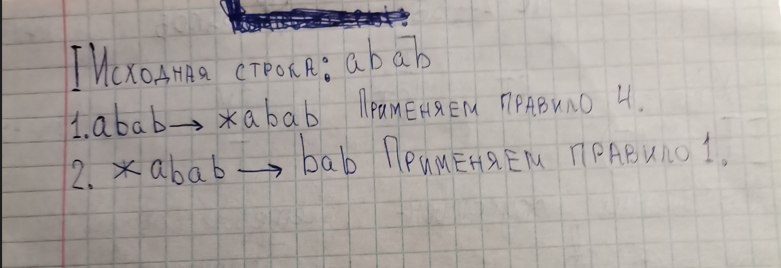 I Исходная строка: abab
1. abab → *abab Применяем правило 4.
2. *abab → bab Применяем правило 1.